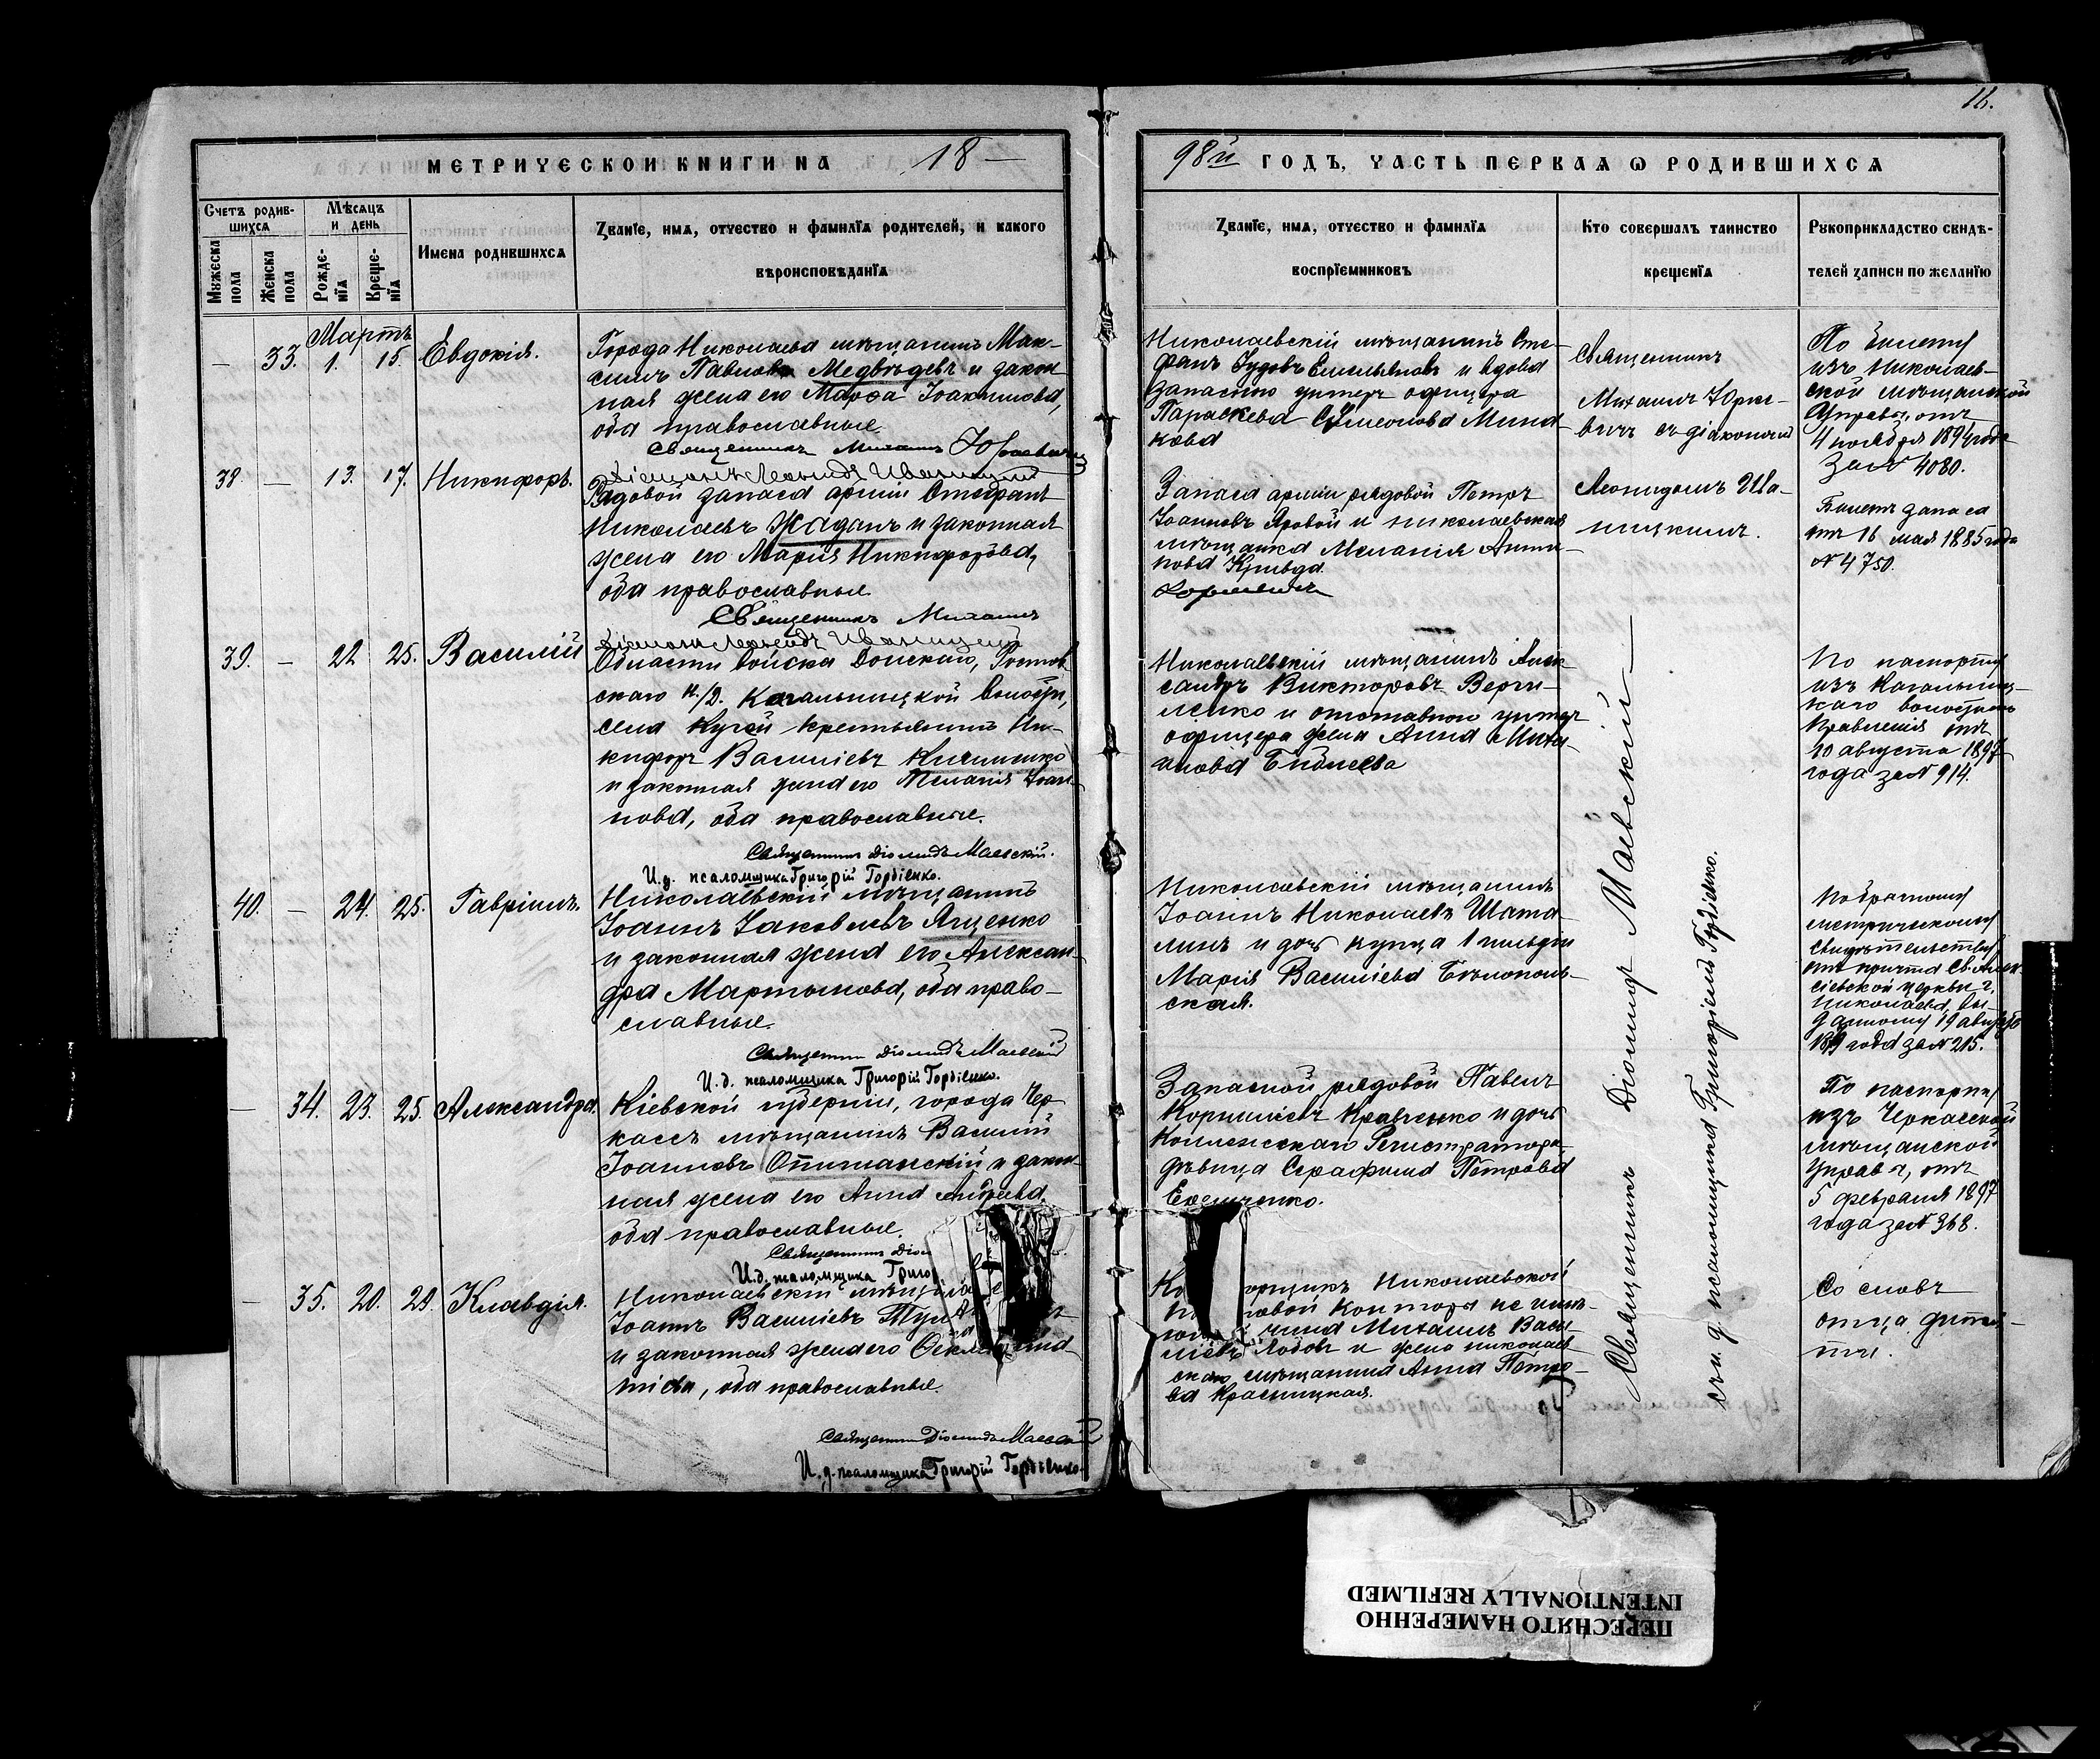 16.
МЕТРИЧЕСКОЙ КНИГИ НА 18—
98й ГОДЪ, ЧАСТЬ ПЕРВАѦ Ѡ РОДИВШИХСѦ
Счетъ родив-
шихсѧ
Мѣсѧцъ
и день
Мꙋжеска
пола
Женска
пола
Рожде-
нїѧ
Креще-
нїѧ
Имена родившихсѧ
Званїе, имѧ, отчество и фамилїѧ родителей, и какого
вѣроисповѣданїѧ
Званїе, имѧ, отчество и фамилїѧ
воспрїемниковъ
Кто совершалъ таинство
крещенїѧ
Рꙋкоприкладство свидѣ-
телей записи по желанїю
Мартъ
— 33. 1. 15. Евдокія.
Города Николаева мѣщанинъ Мак-
симъ Павловъ Медвѣдевъ и закон
ная жена его Марѳа Іоакимова,
оба православные.
Священникъ Михаилъ Юркевичъ
Діаконъ Леонидъ Иваницкій
Николаевскій мѣщанинъ Сте-
фанъ Емельяновъ и вдова
запаснаго унтеръ офицера
Параскева Симеонова
Священникъ
Михаилъ Юрке-
вичъ съ діакономъ
По билету
изъ Николаев-
ской мѣщанской
Управы, отъ
4 ноября 1894 года
за № 4080.
38. — 13. 17. Никифоръ.
Рядовой запаса арміи Стефанъ
Николаевъ Жаданъ и законная
жена его Марія Никифорова,
оба православные
Священникъ Михаилъ
Діаконъ Леонидъ Иваницкій
Запаса арміи рядовой Петръ
Іоанновъ Яровой и николаевская
мѣщанка Меланія Анти-
пова Кривда.
Юркевичъ
Леонидомъ Ива-
ницкимъ.
Билетъ запаса
отъ 16 мая 1885 года
№ 4750.
39. — 22 25. Василій
Области Войска Донскаго, Ростов
скаго о. Кагальницкой волости,
села крестьянинъ Ни-
кифоръ Васильевъ Кичишко
и законная жена его Меланія Іоан-
нова, оба православные.
Священникъ Діомидъ Маевскій.
И.д. псаломщика Григорій Гордіенко.
Николаевскій мѣщанинъ Алек-
сандръ Викторовъ Верги-
ленко и отставнаго унтеръ
офицера жена Анна Михаи-
лова
По паспорту
изъ Кагальниц-
каго волостнаго
Правленія отъ
10 августа 1897
года за № 914.
40. — 24. 25. Гавріилъ.
Николаевскій мѣщанинъ
Іоаннъ Іаковлевъ Яценко
и законная жена его Алексан-
дра Мартынова, оба право-
славные.
Священникъ Діомидъ Маевскій
И.д. псаломщика Григорій Гордіенко.
Николаевскій мѣщанинъ
Іоаннъ Николаевъ Шата-
линъ и дочь купца 1 гильдіи
Марія Васильева Бѣлополь-
ская.
По брачному
метрическому
свидѣтельству
отъ причта Св. Алек-
сіевской церкви г.
Николаева, вы-
данному 19 августа
года за № 215.
— 34. 23. 25 Александра.
Кіевской губерніи, города Чер
касъ мѣщанинъ Василій
Іоанновъ Опишанскій и закон-
ная жена его Анна Андреева,
оба православные.
Священникъ Діом
И.д. псаломщика Григо
Запасной рядовой Павелъ
Корниліевъ Кравченко и дочь
Коллежскаго Регистратора,
дѣвица Серафима Петрова
Евешенко.
По паспорту
изъ Черкасской
мѣщанской
Управы, отъ
5 февраля 1897
года за № 368.
— 35. 20. 29. Клавдія.
Николаевскій мѣщан
Іоаннъ Васильевъ
и законная жена его
оба православные.
Священникъ Діомидъ Маевскій
И.д. псаломщика Григорій Гордіенко.
Николаевской
овой конторы не имѣ-
чина Михаилъ Васи-
ліевъ Лобовъ и жена николаев
скаго мѣщанина Анна Петро-
ва Красницкая.
Со словъ
отца дитя-
ти.
Священникъ Діомидъ Маевскій —
съ и. д. псаломщика Григоріемъ Гордіенко.
ПЕРЕСНЯТО НАМЕРЕННО
INTENTIONALLY REFILMED